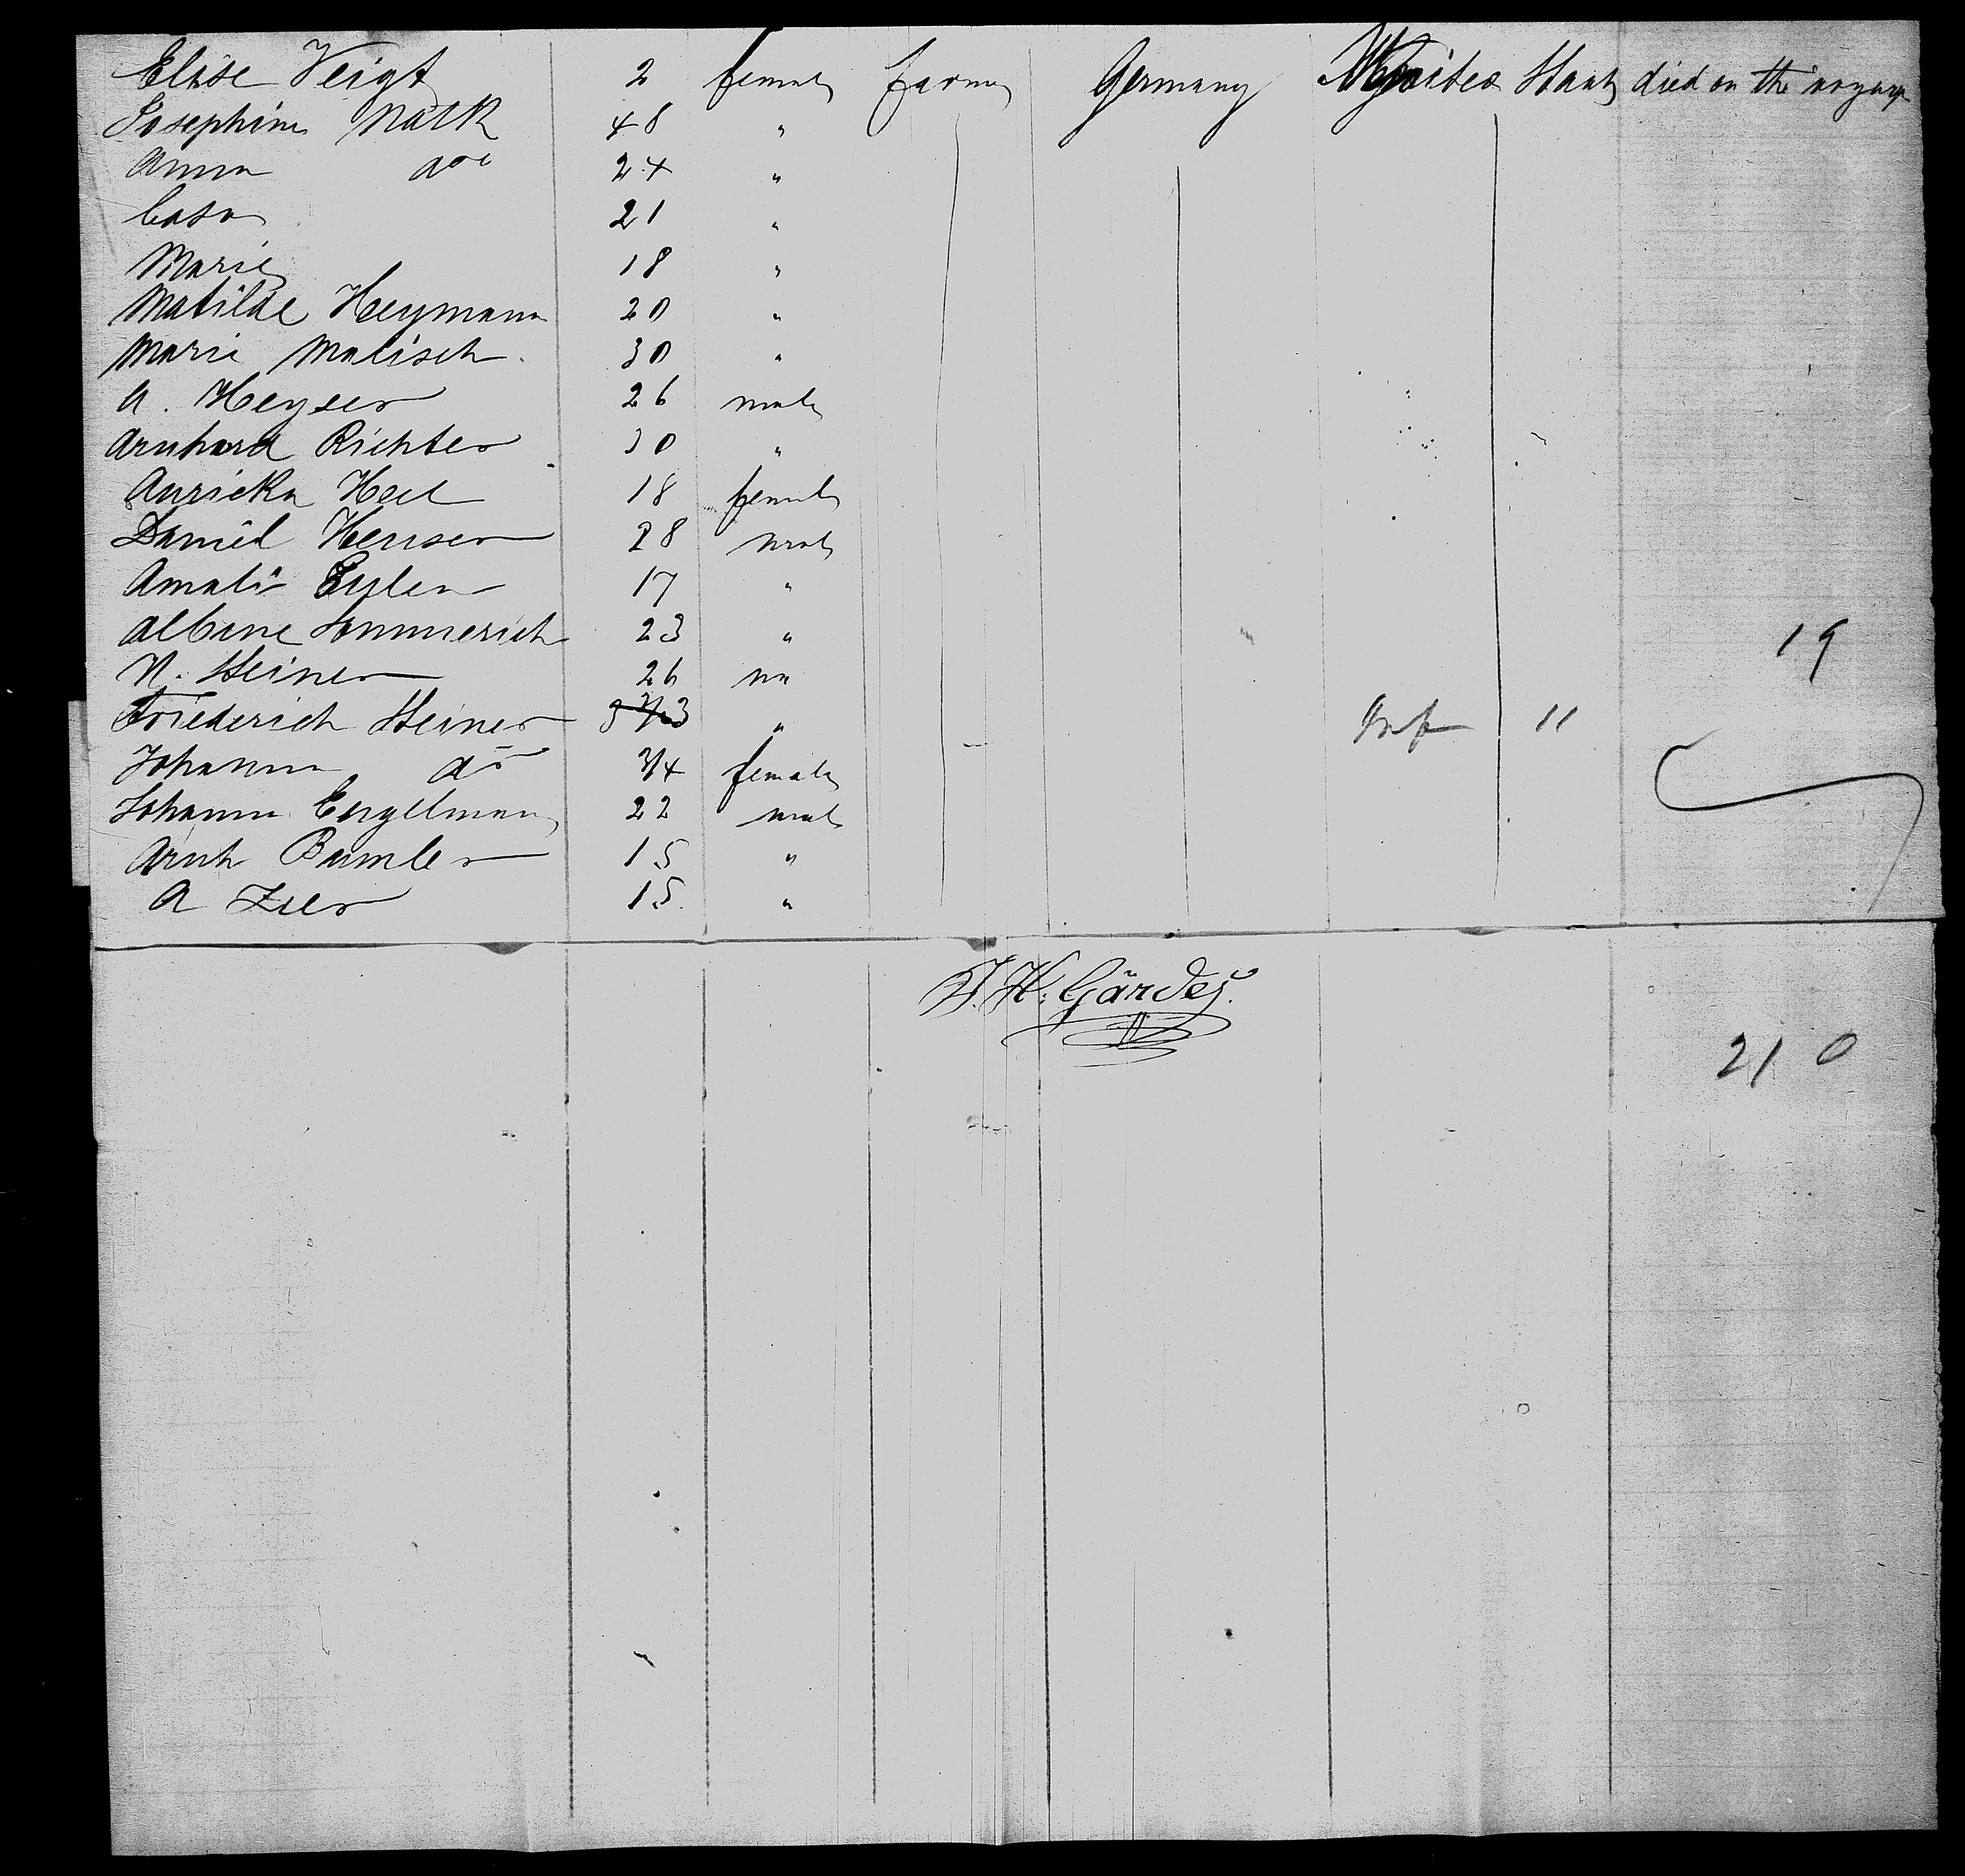 Elise Veigt 2 female farmer Germany United Staats died on the voyage
Josephine Natk 48 "
Anna do 24 "
Casa 21 "
Marie 18 "
Matilde Heymann 20 "
Marie Matisch 30 "
A. Heyser 26 male
Arnhard Richter 30 "
Auricka Heil 18 female
Daniel Henser 28 male
Amali Eylen 17 "
Albine Sommerich 23 "
N. Steiner 26 ma
Friederich Steiner "  Inf 11
Johanna do 3/4 female
Johann Engelmann 22 male
Arnh Bumler 15 "
A Zuer 15 "
19
J. H. Gärdes.
21 0